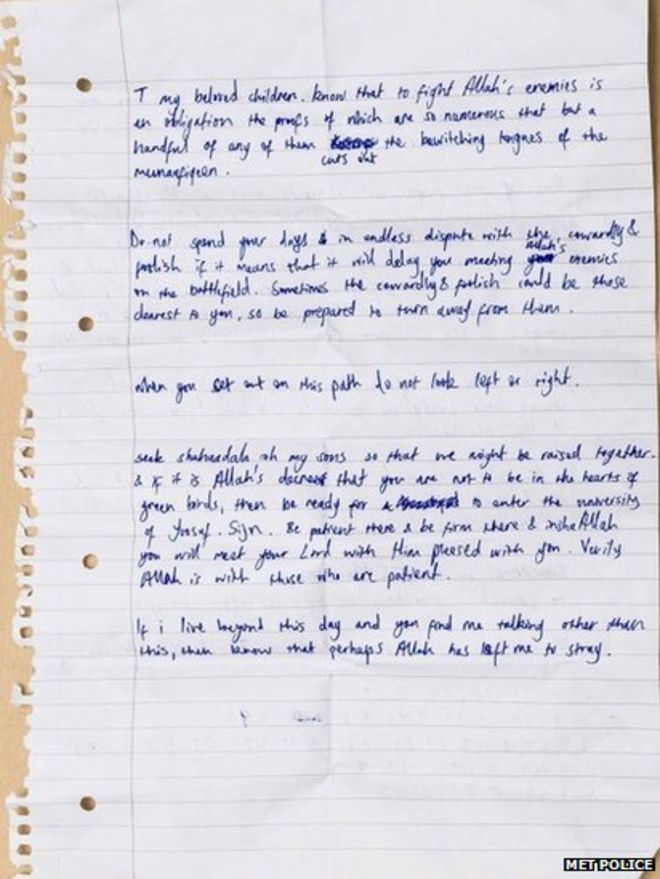 T my beloved children. know that to fight Allah's enemies is
an obligation the proofs of which are so numerous that but a
handful of any of them cuts out the bewitching tongues of the
munaafiqeen.
Do not spend your days in endless dispute with the cowardly &
foolish if it means that it will delay you meeting Allah's enemies
on the battlefield. Sometimes the cowardly & foolish could be those
dearest to you, so be prepared to turn away from them.
when you set out on this path do not look left or right.
seek shahaadala oh my sons so that we might be raised together.
& if it is Allah's decree that you are not to be in the hearts of
green birds, then be ready for to enter the university
of Yoosuf. Sijn. Be patient there & be firm there & insha Allah
you will meet your Lord with Him pleased with you. Verily
Allah is with those who are patient.
If i live beyond this day and you find me talking other than
this, then know that perhaps Allah has left me to stray.
MET POLICE